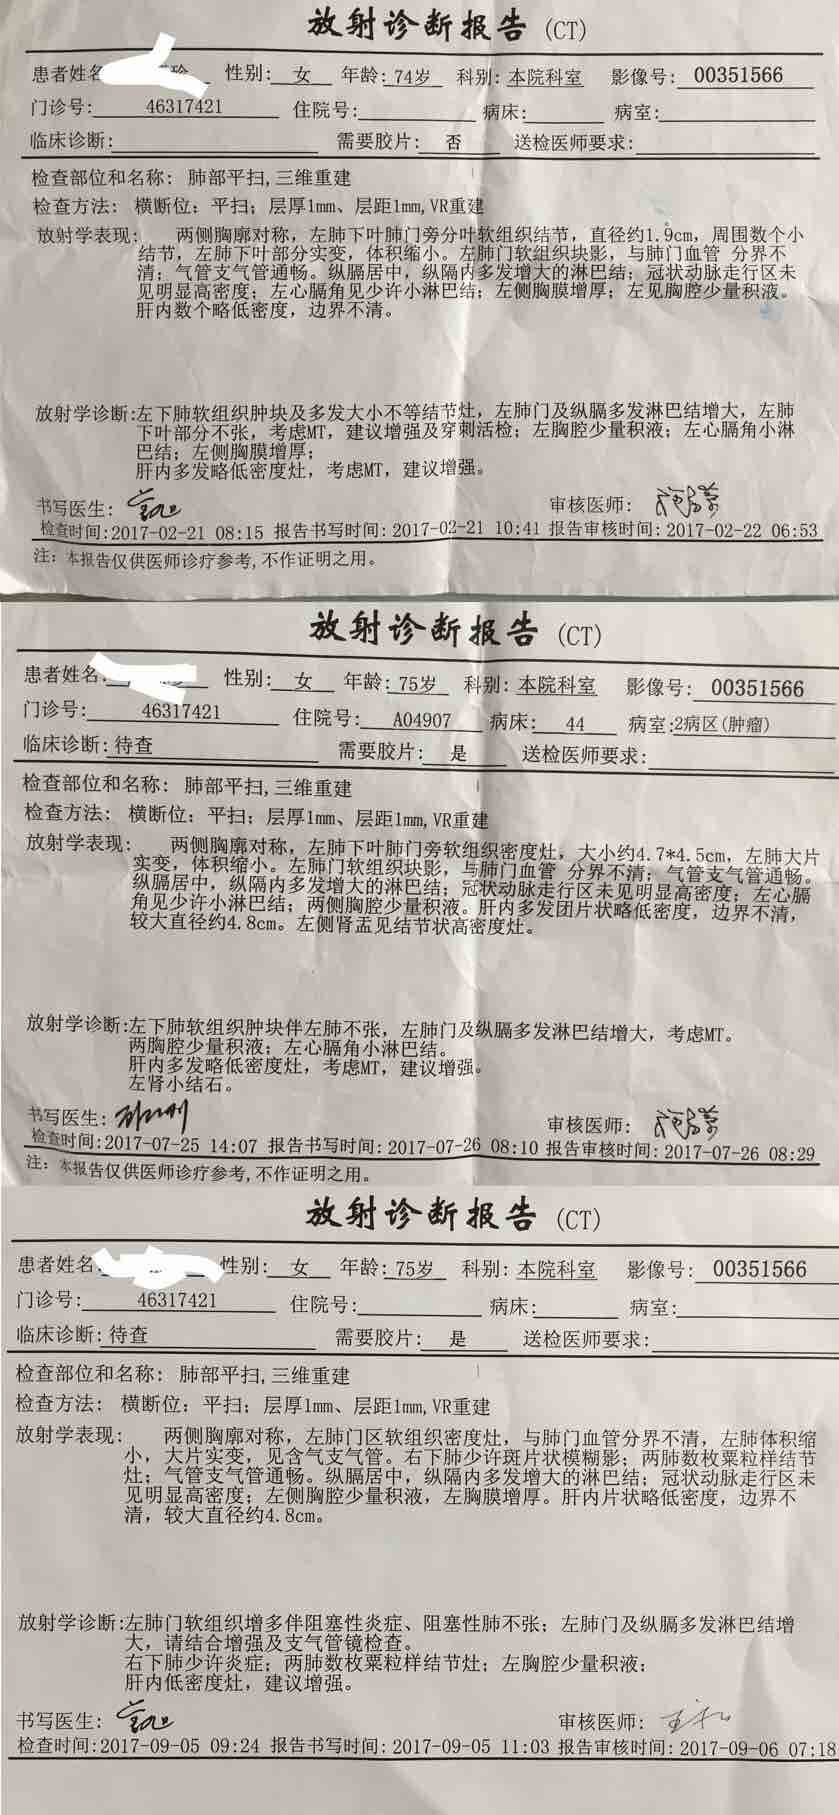 放射诊断报告(CT)
患者姓名: 性别: 女 年龄:74岁 科别:本院科室 影像号: 00351566
门诊号: 46317421 住院号: 病床: 病室:
临床诊断: 需要胶片: 否 送检医师要求:
检查部位和名称: 肺部平扫,三维重建
检查方法: 横断位: 平扫; 层厚1mm、层距1mm,VR重建
放射学表现: 两侧胸廓对称, 左肺下叶肺门旁分叶软组织结节, 直径约1.9cm, 周围数个小
结节, 左肺下叶部分实变, 体积缩小。左肺门软组织块影, 与肺门血管 分界不
清; 气管支气管通畅。纵膈居中, 纵隔内多发增大的淋巴结; 冠状动脉走行区未
见明显高密度; 左心膈角见少许小淋巴结; 左侧胸膜增厚; 左见胸腔少量积液。
肝内数个略低密度, 边界不清。
放射学诊断:左下肺软组织肿块及多发大小不等结节灶, 左肺门及纵膈多发淋巴结增大, 左肺
下叶部分不张, 考虑MT, 建议增强及穿刺活检; 左胸腔少量积液; 左心膈角小淋
巴结; 左侧胸膜增厚;
肝内多发略低密度灶, 考虑MT, 建议增强。
书写医生: 审核医师:
检查时间:2017-02-21 08:15 报告书写时间: 2017-02-21 10:41 报告审核时间: 2017-02-22 06:53
注: 本报告仅供医师诊疗参考,不作证明之用。
放射诊断报告(CT)
患者姓名: 性别: 女 年龄:75岁 科别:本院科室 影像号: 00351566
门诊号: 46317421 住院号: A04907 病床: 44 病室:2病区(肿瘤)
临床诊断:待查 需要胶片: 是 送检医师要求:
检查部位和名称: 肺部平扫,三维重建
检查方法: 横断位: 平扫; 层厚1mm、层距1mm,VR重建
放射学表现: 两侧胸廓对称, 左肺下叶肺门旁软组织密度灶, 大小约4.7*4.5cm, 左肺大片
实变, 体积缩小。左肺门软组织块影, 与肺门血管 分界不清; 气管支气管通畅。
纵膈居中, 纵隔内多发增大的淋巴结; 冠状动脉走行区未见明显高密度; 左心膈
角见少许小淋巴结; 两侧胸腔少量积液。肝内多发团片状略低密度, 边界不清,
较大直径约4.8cm。左侧肾盂见结节状高密度灶。
放射学诊断:左下肺软组织肿块伴左肺不张, 左肺门及纵膈多发淋巴结增大, 考虑MT。
两胸腔少量积液; 左心膈角小淋巴结。
肝内多发略低密度灶, 考虑MT, 建议增强。
左肾小结石。
书写医生: 审核医师:
检查时间:2017-07-25 14:07 报告书写时间: 2017-07-26 08:10 报告审核时间: 2017-07-26 08:29
注: 本报告仅供医师诊疗参考,不作证明之用。
放射诊断报告(CT)
患者姓名: 性别: 女 年龄:75岁 科别:本院科室 影像号: 00351566
门诊号: 46317421 住院号: 病床: 病室:
临床诊断:待查 需要胶片: 是 送检医师要求:
检查部位和名称: 肺部平扫,三维重建
检查方法: 横断位: 平扫; 层厚1mm、层距1mm,VR重建
放射学表现: 两侧胸廓对称, 左肺门区软组织密度灶, 与肺门血管分界不清, 左肺体积缩
小, 大片实变, 见含气支气管。右下肺少许斑片状模糊影; 两肺数枚粟粒样结节
灶; 气管支气管通畅。纵膈居中, 纵隔内多发增大的淋巴结; 冠状动脉走行区未
见明显高密度; 左侧胸腔少量积液, 左胸膜增厚。肝内片状略低密度, 边界不
清, 较大直径约4.8cm。
放射学诊断:左肺门软组织增多伴阻塞性炎症、阻塞性肺不张; 左肺门及纵膈多发淋巴结增
大, 请结合增强及支气管镜检查。
右下肺少许炎症; 两肺数枚粟粒样结节灶; 左胸腔少量积液;
肝内低密度灶, 建议增强。
书写医生: 审核医师:
检查时间:2017-09-05 09:24 报告书写时间: 2017-09-05 11:03 报告审核时间: 2017-09-06 07:18